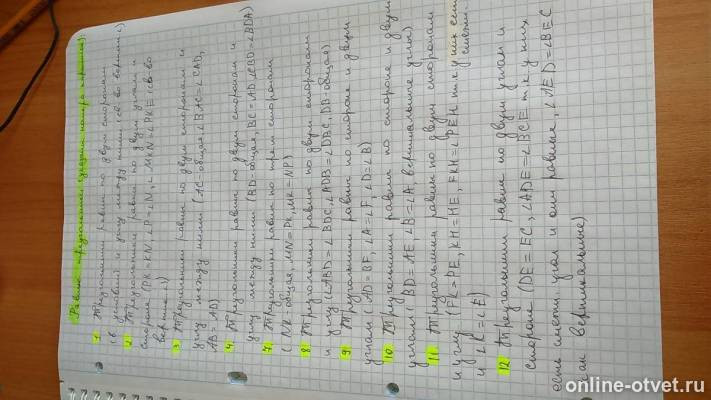 Равные треугольники (указаны номера картинок).
1. Треугольники равны по двум сторонам
и углу между ними
2. Треугольники равны по двум углам и
стороне (PK=KN, ∠P=∠N, ∠MKN=∠PKE
3 Треугольники равны по двум сторонам и
углу между ними (AC-общая, ∠BAC=∠CAD,
AB=AD)
4 Треугольники равны по двум сторонам и
углу между ними (BD-общая, BC=AD, ∠CBD=∠BDA)
7. Треугольники равны по трем сторонам
(NK-общая, MN=PK, MK=NP)
8 Треугольники равны по двум сторонам
и углу (∠ABD=∠BDC, ∠ADB=∠DBC, DB-общая)
9 Треугольники равны по стороне и двум
углам (AD=BF, ∠A=∠F, ∠D=∠B)
10 Треугольники равны по стороне и двум
углам (BD=AE, ∠B=∠A, вертикальные углы)
11 Треугольники равны по двум сторонам
и углу (FK=PE, KH=HE, FKH=∠PEH т.к у них есть
и ∠K=∠E)
12 Треугольники равны по двум углам и
стороне (DE=EC, ∠ADE=∠BCE т к у них
есть смежн. угол и они равные, ∠AED=∠BEC
как вертикальные)
online-otvet.ru